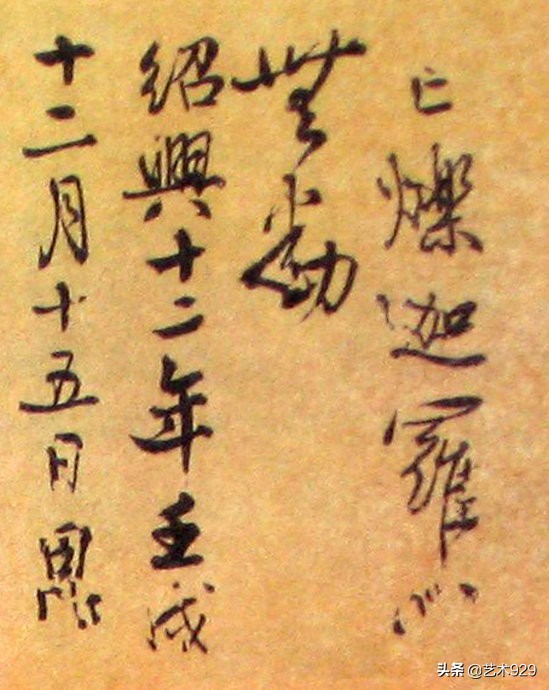 亡爍迦羅心
無動
紹興十二年壬戌
十二月十五日
头条 @艺术929